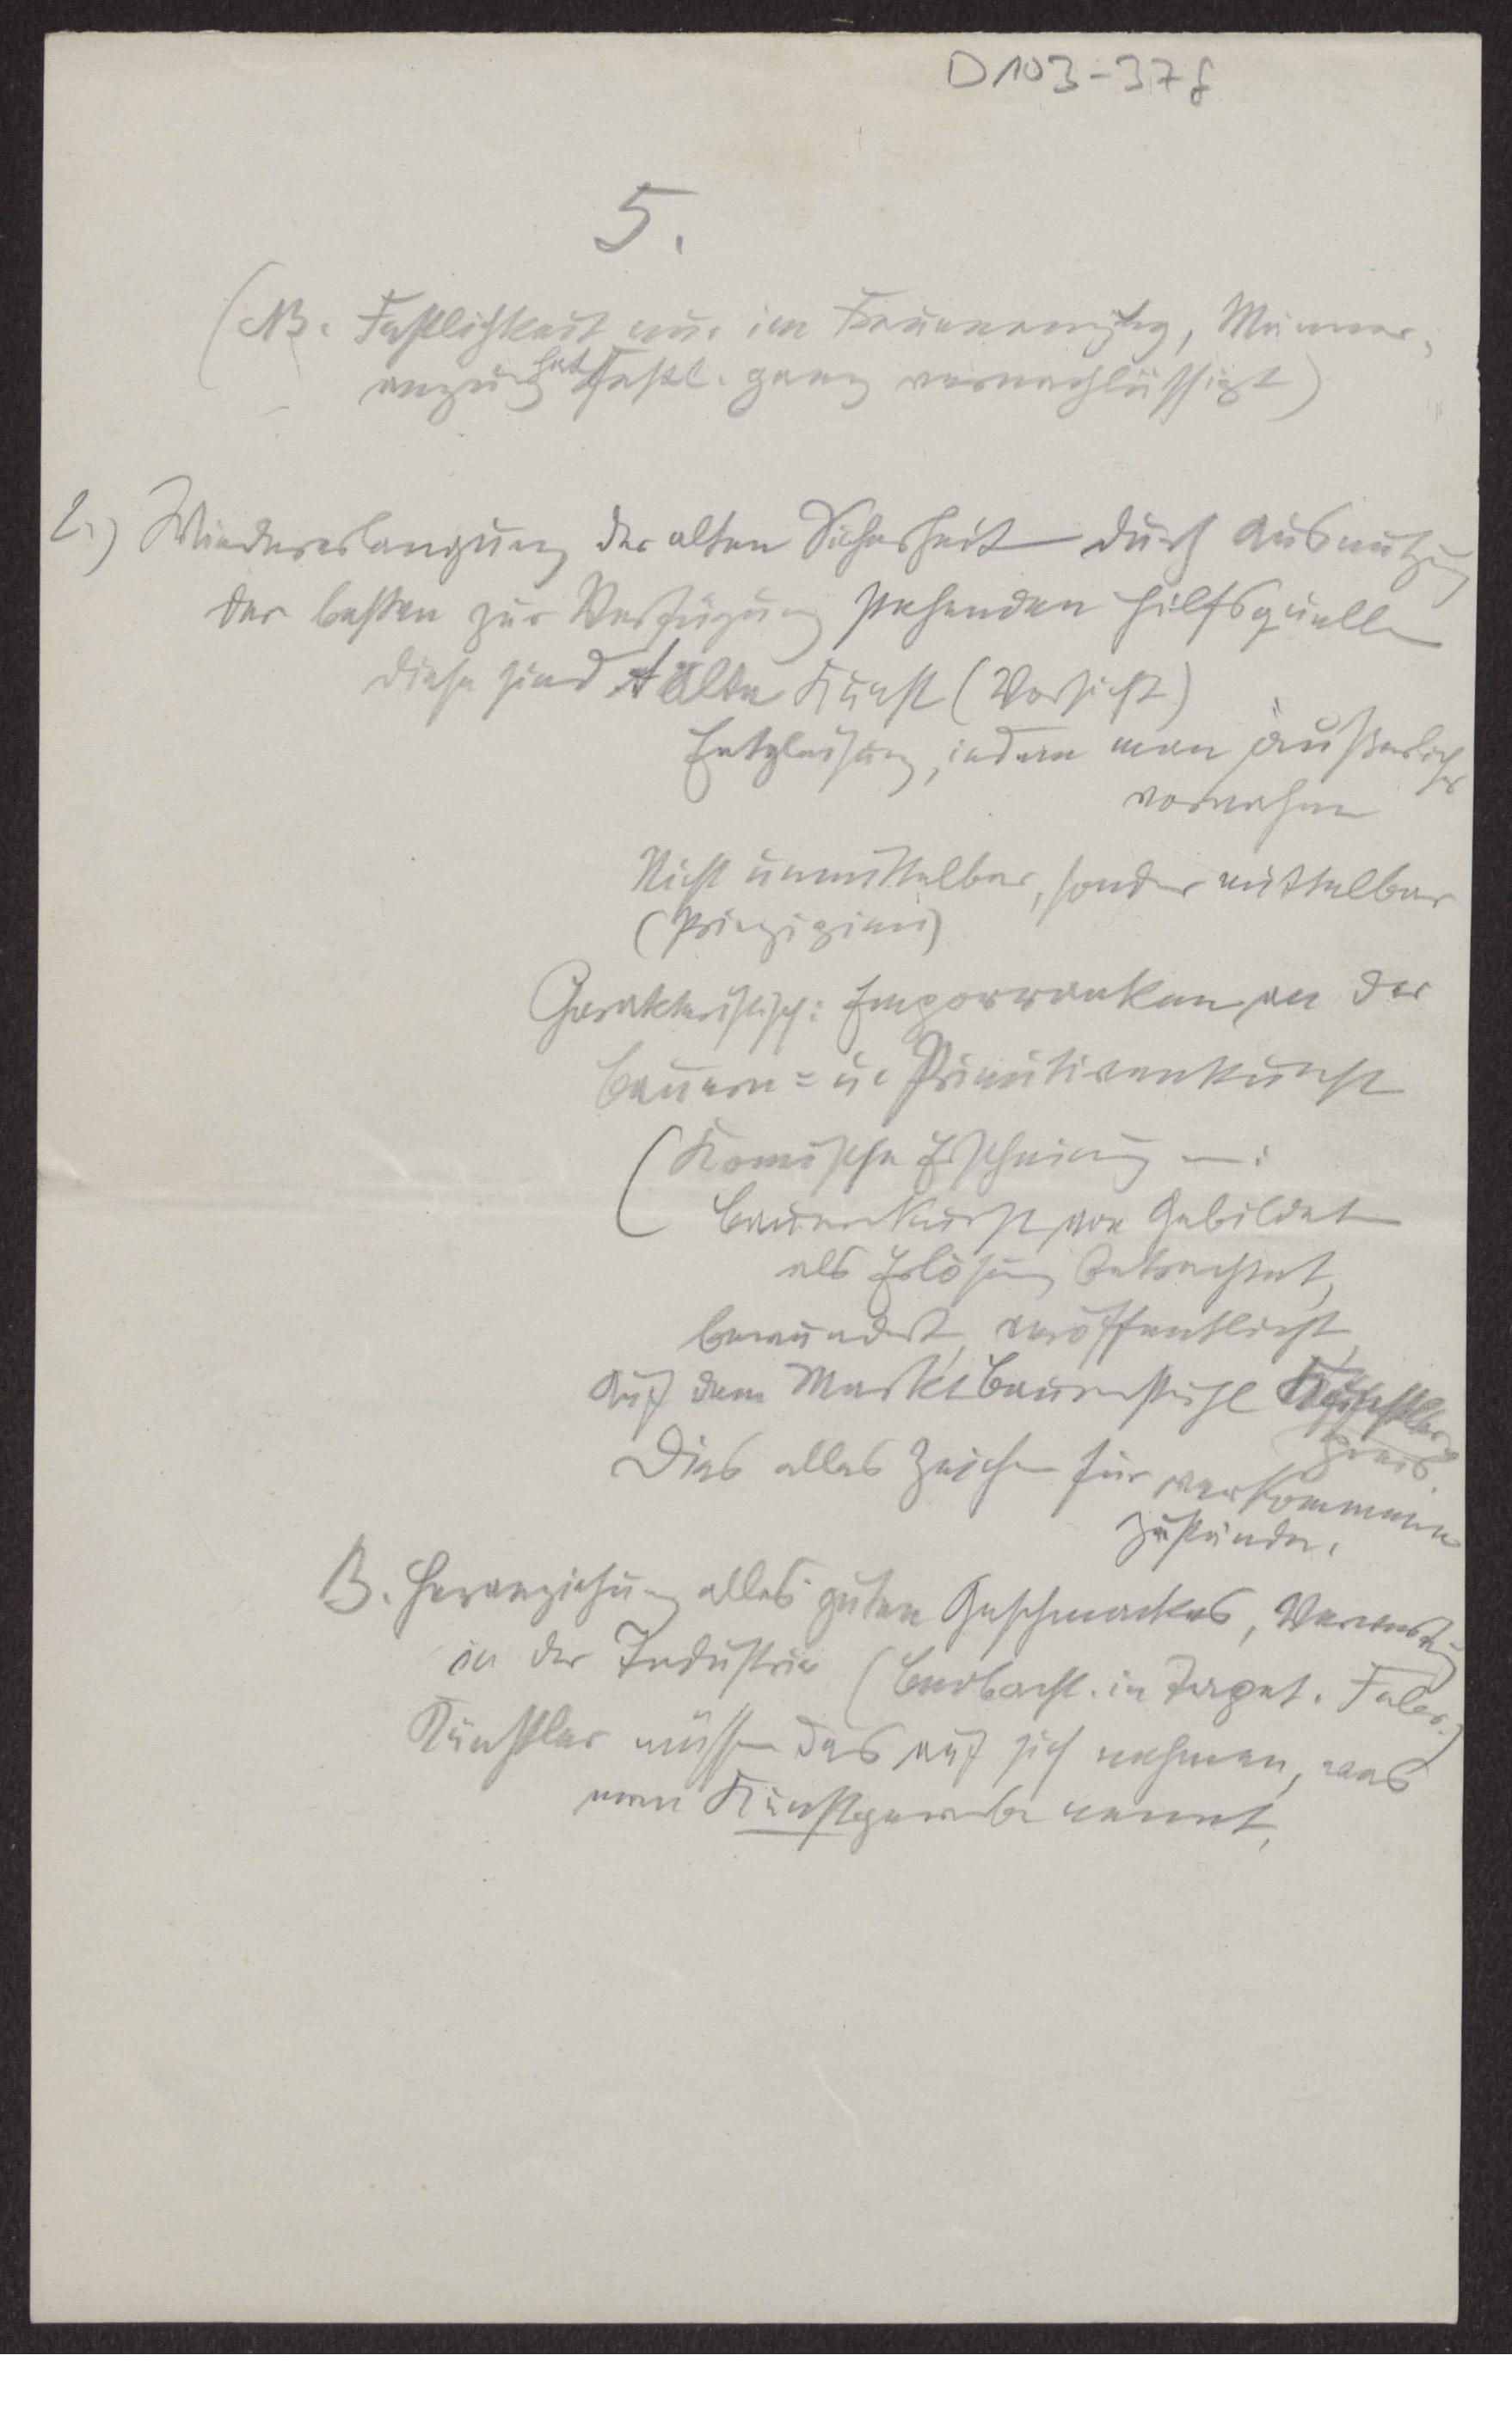 D103-37f
5.
(NB. Festlichkeit nur im Frauenanzug, Männer-
anzug hat Festl. ganz vernachlässigt)
2.) Wiedererlangung der alten Sicherheit durch Ausnutzung
der besten zur Verfügung stehenden Hilfsquellen
diese sind A alte Kunst (Vorsicht)
Entgleisung, indem man äußerlich
vornahm
Nicht unmittelbar, sondern mittelbar
(Prinzipien)
Charakteristisch: Emporranken an der
Bauern= u. Primitivenkunst
(Komische Erscheinung :
Bauernkunst von Gebildeten
als Erlösung betrachtet,
bewundert, veröffentlicht,
Auf dem Markt Bauernstühle
Dies alles Zeichen für verkommene
Zustände.
B. Heranziehung alles guten Geschmackes, Verwendung
in der Industrie (beobacht. in
Künstler müssen das auf sich nehmen, was
man Kunstgewerbe nennt,